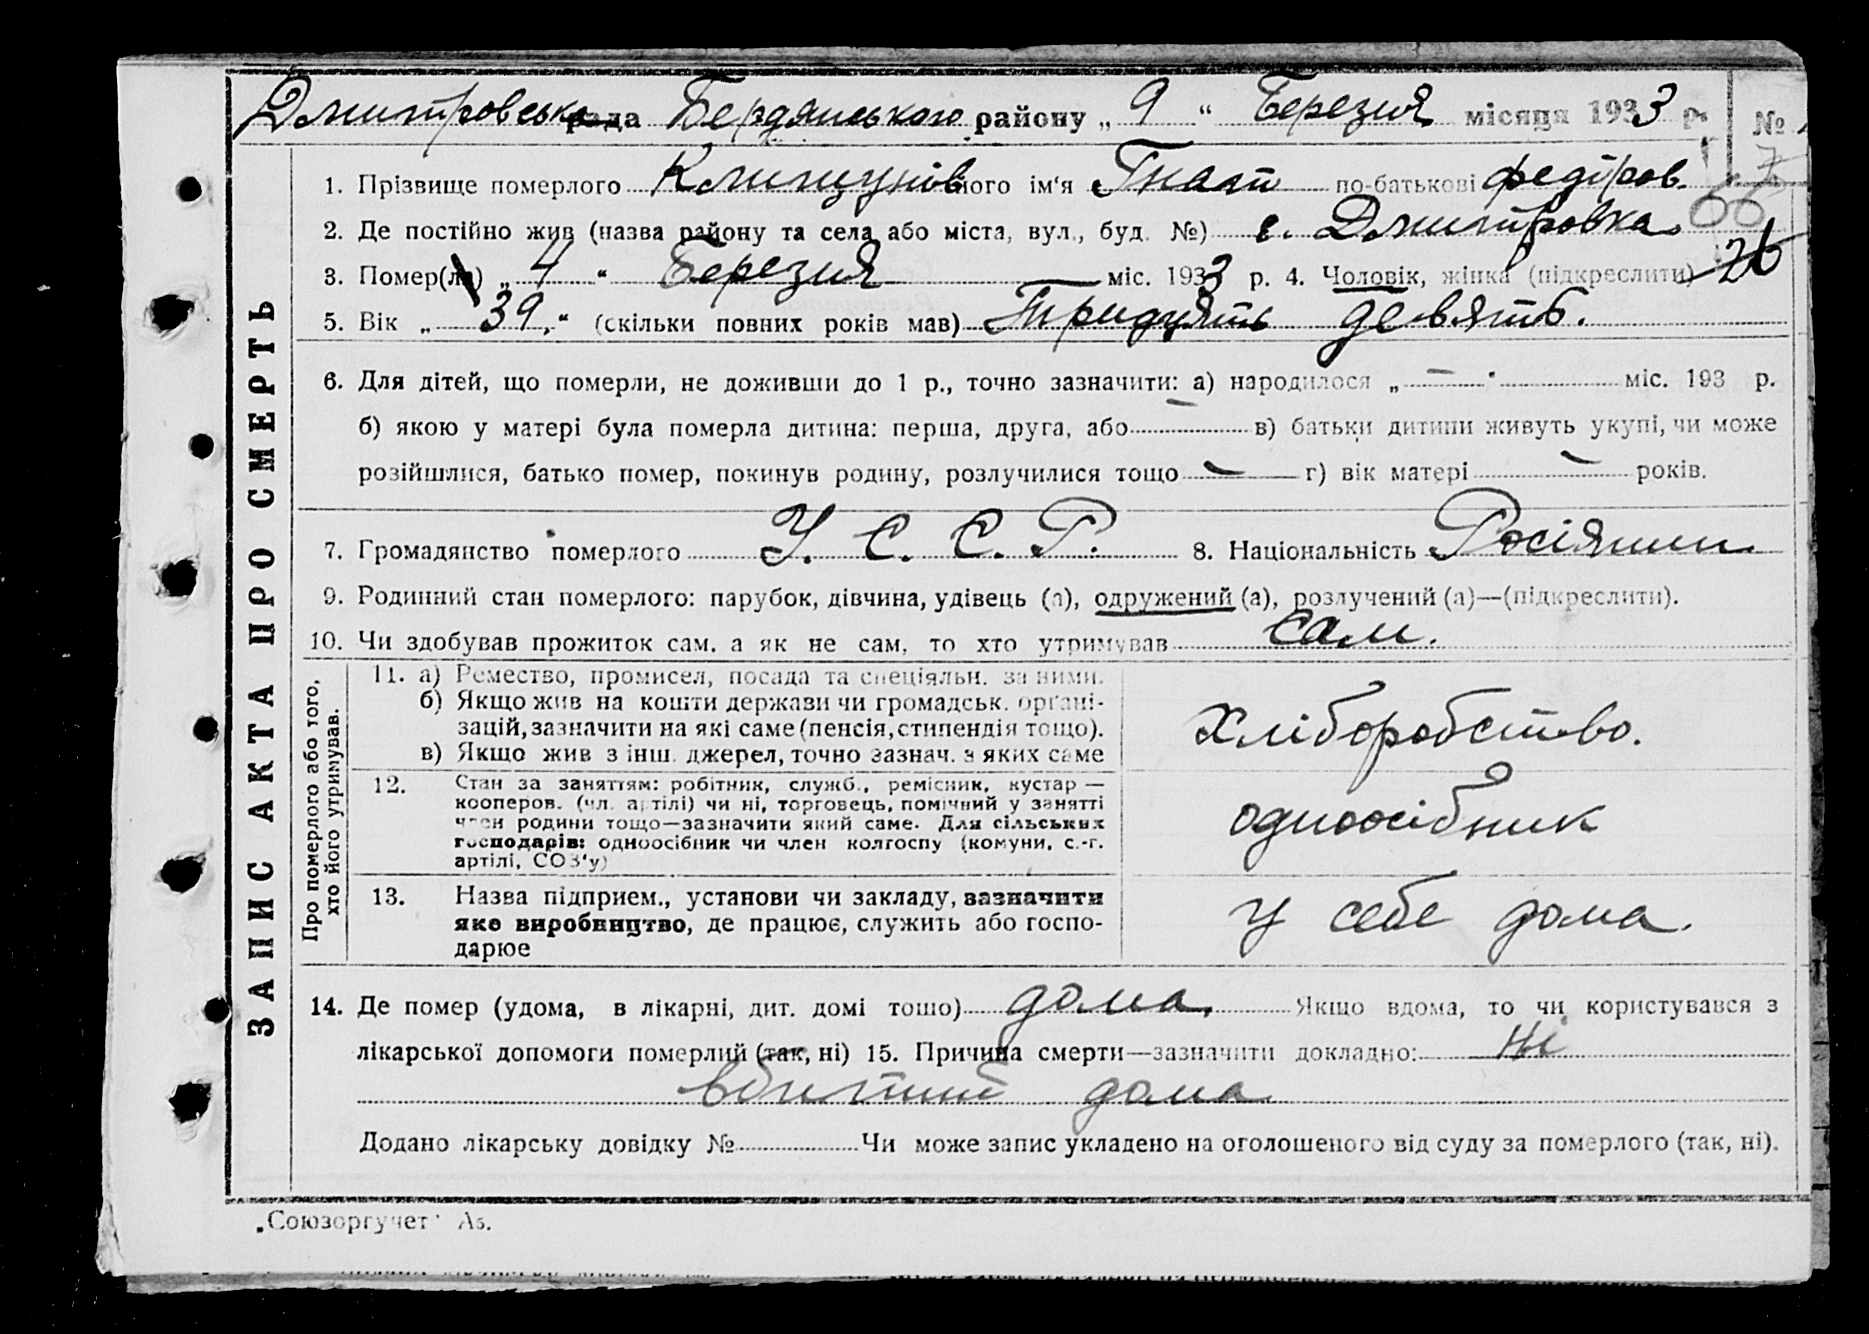 Дмитровська рада Бердянського району „ 9 “ Березня місяця 1933 р. №
1. Прізвище померлого Клищунів його ім'я Гнат по-батькові Федіров.
2. Де постійно жив (назва району та села або міста, вул., буд. №) с. Дмитровка 66
3. Помер(ла) „ 4 “ Березня міс. 1933 р. 4. Чоловік, жінка (підкреслити) 26
5. Вік „ 39 “ (скільки повних років мав) Тридцять девять.
6. Для дітей, що померли, не доживши до 1 р., точно зазначити: а) народилося „ — “ міс. 193 р.
б) якою у матері була померла дитина: перша, друга, або — в) батьки дитини живуть укупі, чи може
розійшлися, батько помер, покинув родину, розлучилися тощо — г) вік матері — років.
7. Громадянство померлого У. С. С. Р. 8. Національність Росіянин
9. Родинний стан померлого: парубок, дівчина, удівець (а), одружений (а), розлучений (а)—(підкреслити).
10. Чи здобував прожиток сам, а як не сам, то хто утримував сам.
ЗАПИС АКТА ПРО СМЕРТЬ
Про померлого або того,
хто його утримував.
11. а) Ремество, промисел, посада та спеціяльн. за ними.
б) Якщо жив на кошти держави чи громадськ. органі-
зацій, зазначити на які саме (пенсія, стипендія тощо).
в) Якщо жив з інш. джерел, точно зазнач. з яких саме
Хліборобство.
12. Стан за заняттям: робітник, служб., ремісник, кустар —
кооперов. (чл. артілі) чи ні, торговець, помічний у занятті
член родини тощо—зазначити який саме. Для сільських
господарів: одноосібник чи член колгоспу (комуни, с.-г.
артілі, СОЗ'у)
одноосібник
13. Назва підприєм., установи чи закладу, зазначити
яке виробництво, де працює, служить або госпо-
дарює
у себе дома.
14. Де помер (удома, в лікарні, дит. домі тощо) дома. Якщо вдома, то чи користувався з
лікарської допомоги померлий (так, ні) 15. Причина смерти—зазначити докладно: Ні
вбитий дома
Додано лікарську довідку № Чи може запис укладено на оголошеного від суду за померлого (так, ні).
„Союзоргучет“ А5.